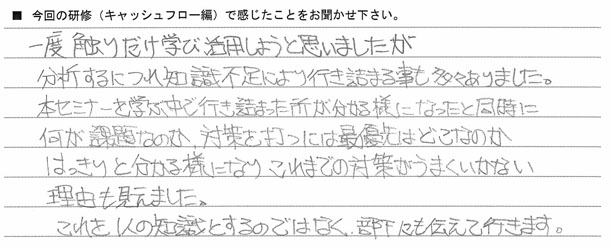 ■ 今回の研修（キャッシュフロー編）で感じたことをお聞かせ下さい。
一度触りだけ学び活用しようと思いましたが
分析するにつれ知識不足により行き詰まる事も多々ありました。
本セミナーを学ぶ中で行き詰まった所が分かる様になったと同時に
何が課題なのか、対策を打つには最優先はどこなのか
はっきりと分かる様になりこれまでの対策がうまくいかない
理由も見えました。
これを1人の知識とするのではなく、部下にも伝えて行きます。